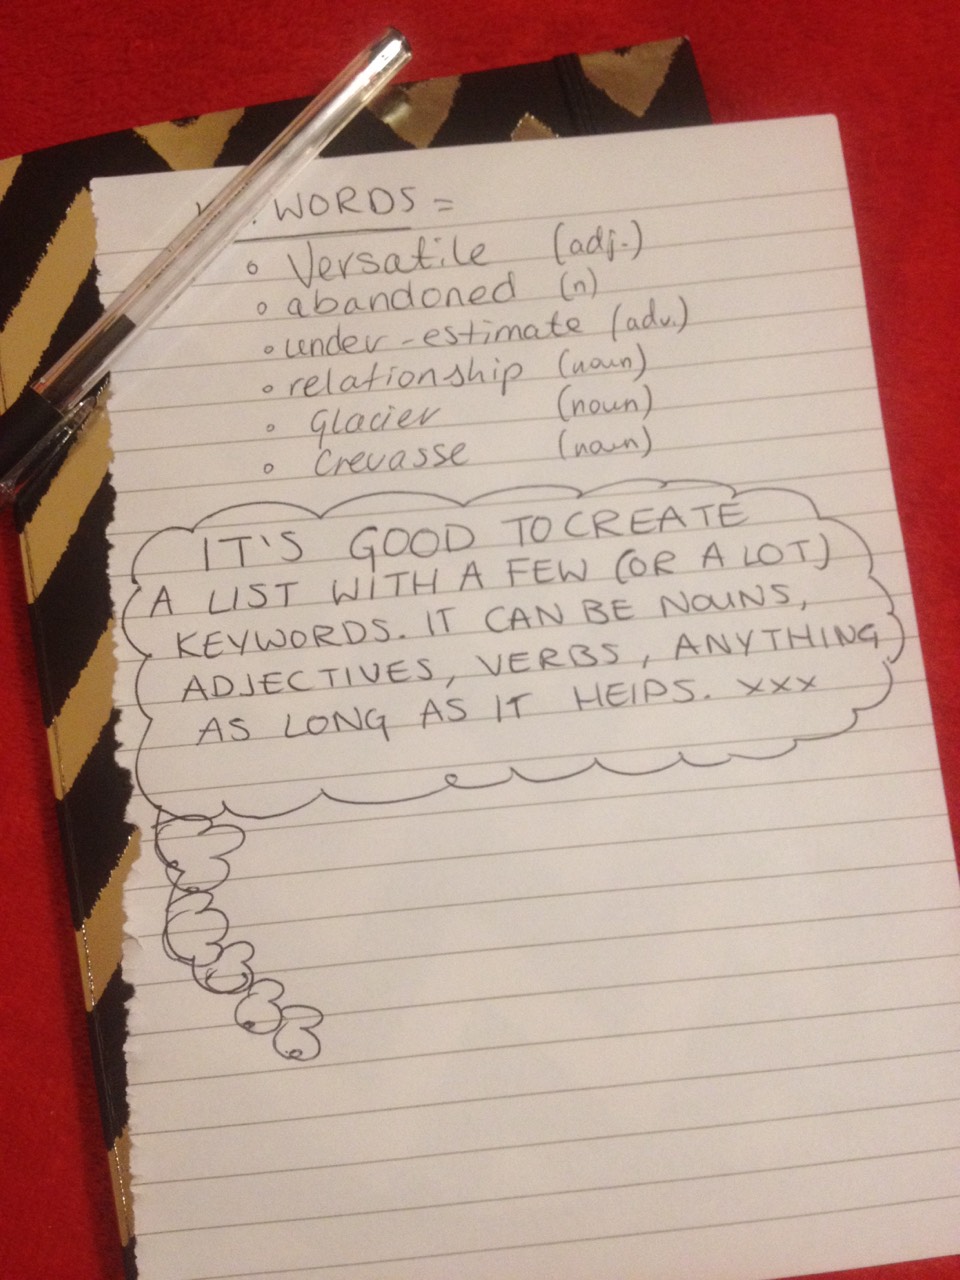 WORDS =
° Versatile (adj.)
° abandoned (n)
° under-estimate (adv.)
° relationship (noun)
° Glacier (noun)
° Crevasse (noun)
IT'S GOOD TO CREATE
A LIST WITH A FEW (OR A LOT)
KEYWORDS. IT CAN BE NOUNS,
ADJECTIVES, VERBS, ANYTHING
AS LONG AS IT HElPS. xxx